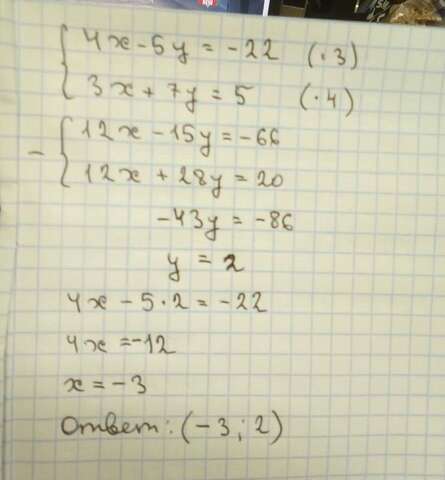 4x - 5y = -22 (·3)
3x + 7y = 5 (·4)
12x - 15y = -66
- 12x + 28y = 20
-43y = -86
y = 2
4x - 5·2 = -22
4x = -12
x = -3
Ответ: (-3; 2)